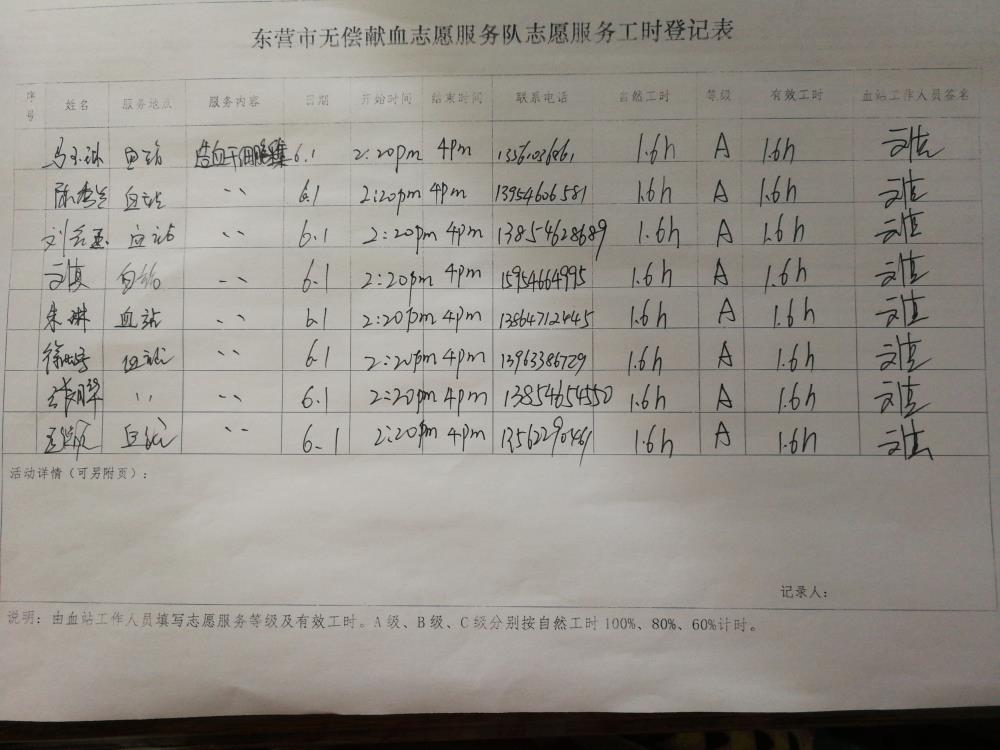 东营市无偿献血志愿服务队志愿服务工时登记表
序号 姓名 服务地点 服务内容 日期 开始时间 结束时间 联系电话 自然工时 等级 有效工时 血站工作人员签名
血站 造血干细胞 6.1 2:20pm 4pm 1.6h A 1.6h
血站 〃 6.1 2:20pm 4pm 13954606581 1.6h A 1.6h
血站 〃 6.1 2:20pm 4pm 13854628689 1.6h A 1.6h
血站 〃 6.1 2:20pm 4pm 15954664995 1.6h A 1.6h
朱琳 血站 〃 6.1 2:20pm 4pm 13864712445 1.6h A 1.6h
血站 〃 6.1 2:20pm 4pm 13963386729 1.6h A 1.6h
〃 〃 6.1 2:20pm 4pm 13854654550 1.6h A 1.6h
血站 〃 6.1 2:20pm 4pm 13562290461 1.6h A 1.6h
活动详情（可另附页）：
记录人：
说明：由血站工作人员填写志愿服务等级及有效工时。A级、B级、C级分别按自然工时100%、80%、60%计时。